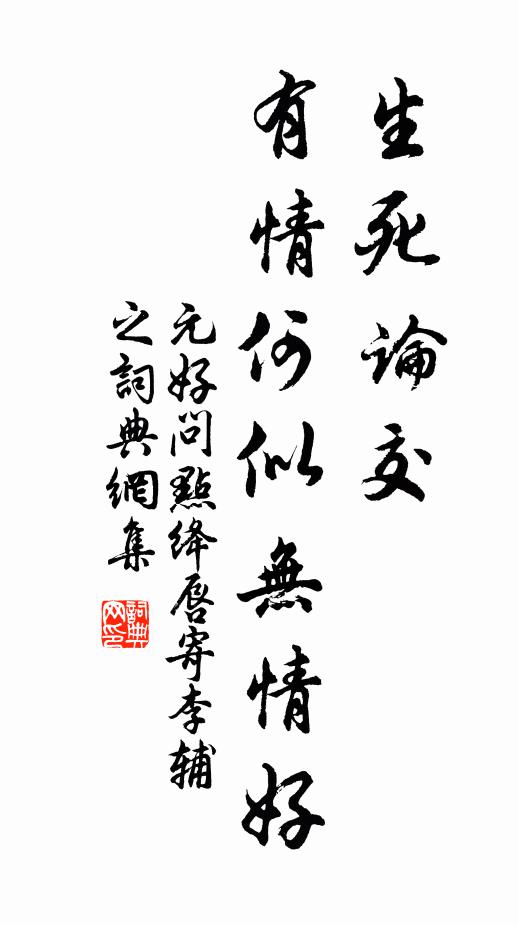 生死論交
有情何似無情好
元好問點绛唇寄李辅
之詞典網集
詞典网印